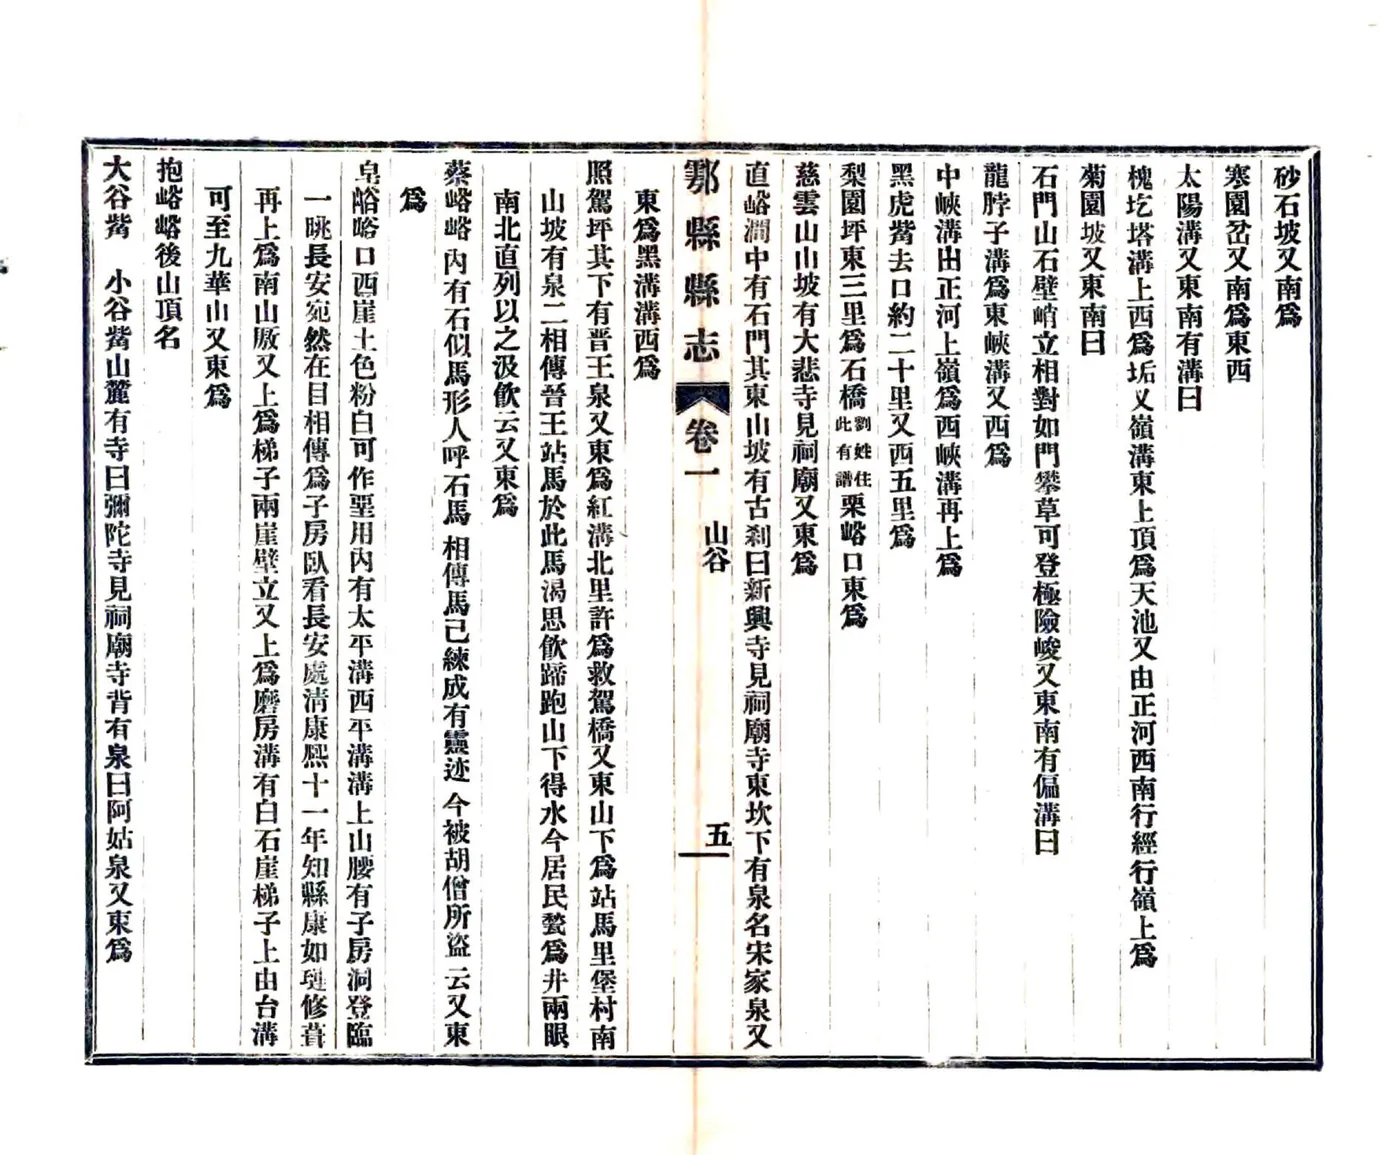 砂石坡又南爲
寒園岔又南爲東西
太陽溝又東南有溝曰
槐圪塔溝上西爲垢又嶺溝東上頂爲天池又由正河西南行經行嶺上爲
菊園坡又東南曰
石門山石壁峭立相對如門攀草可登極險峻又東南有偏溝曰
龍脖子溝爲東峽溝又西爲
中峽溝出正河上嶺爲西峽溝再上爲
黑虎觜去口約二十里又西五里爲
梨園坪東三里爲石橋劉姓住此有譜栗峪口東爲
慈雲山山坡有大悲寺見祠廟又東爲
直峪澗中有石門其東山坡有古刹曰新興寺見祠廟寺東坎下有泉名宋家泉又
鄠縣縣志 卷一 山谷 五
東爲黑溝溝西爲
照駕坪其下有晋王泉又東爲紅溝北里許爲救駕橋又東山下爲站馬里堡村南
山坡有泉二相傳晉王站馬於此馬渴思飲蹄跑山下得水今居民甃爲井兩眼
南北直列以之汲飲云又東爲
蔡峪峪內有石似馬形人呼石馬相傳馬已練成有靈迹今被胡僧所盜云又東
爲
皁峪峪口西崖土色粉白可作堊用內有太平溝西平溝溝上山腰有子房洞登臨
一眺長安宛然在目相傳爲子房臥看長安處清康熙十一年知縣康如璉修葺
再上爲南山厫又上爲梯子兩崖壁立又上爲磨房溝有白石崖梯子上由台溝
可至九華山又東爲
抱峪峪後山頂名
大谷觜 小谷觜山麓有寺曰彌陀寺見祠廟寺背有泉曰阿姑泉又東爲